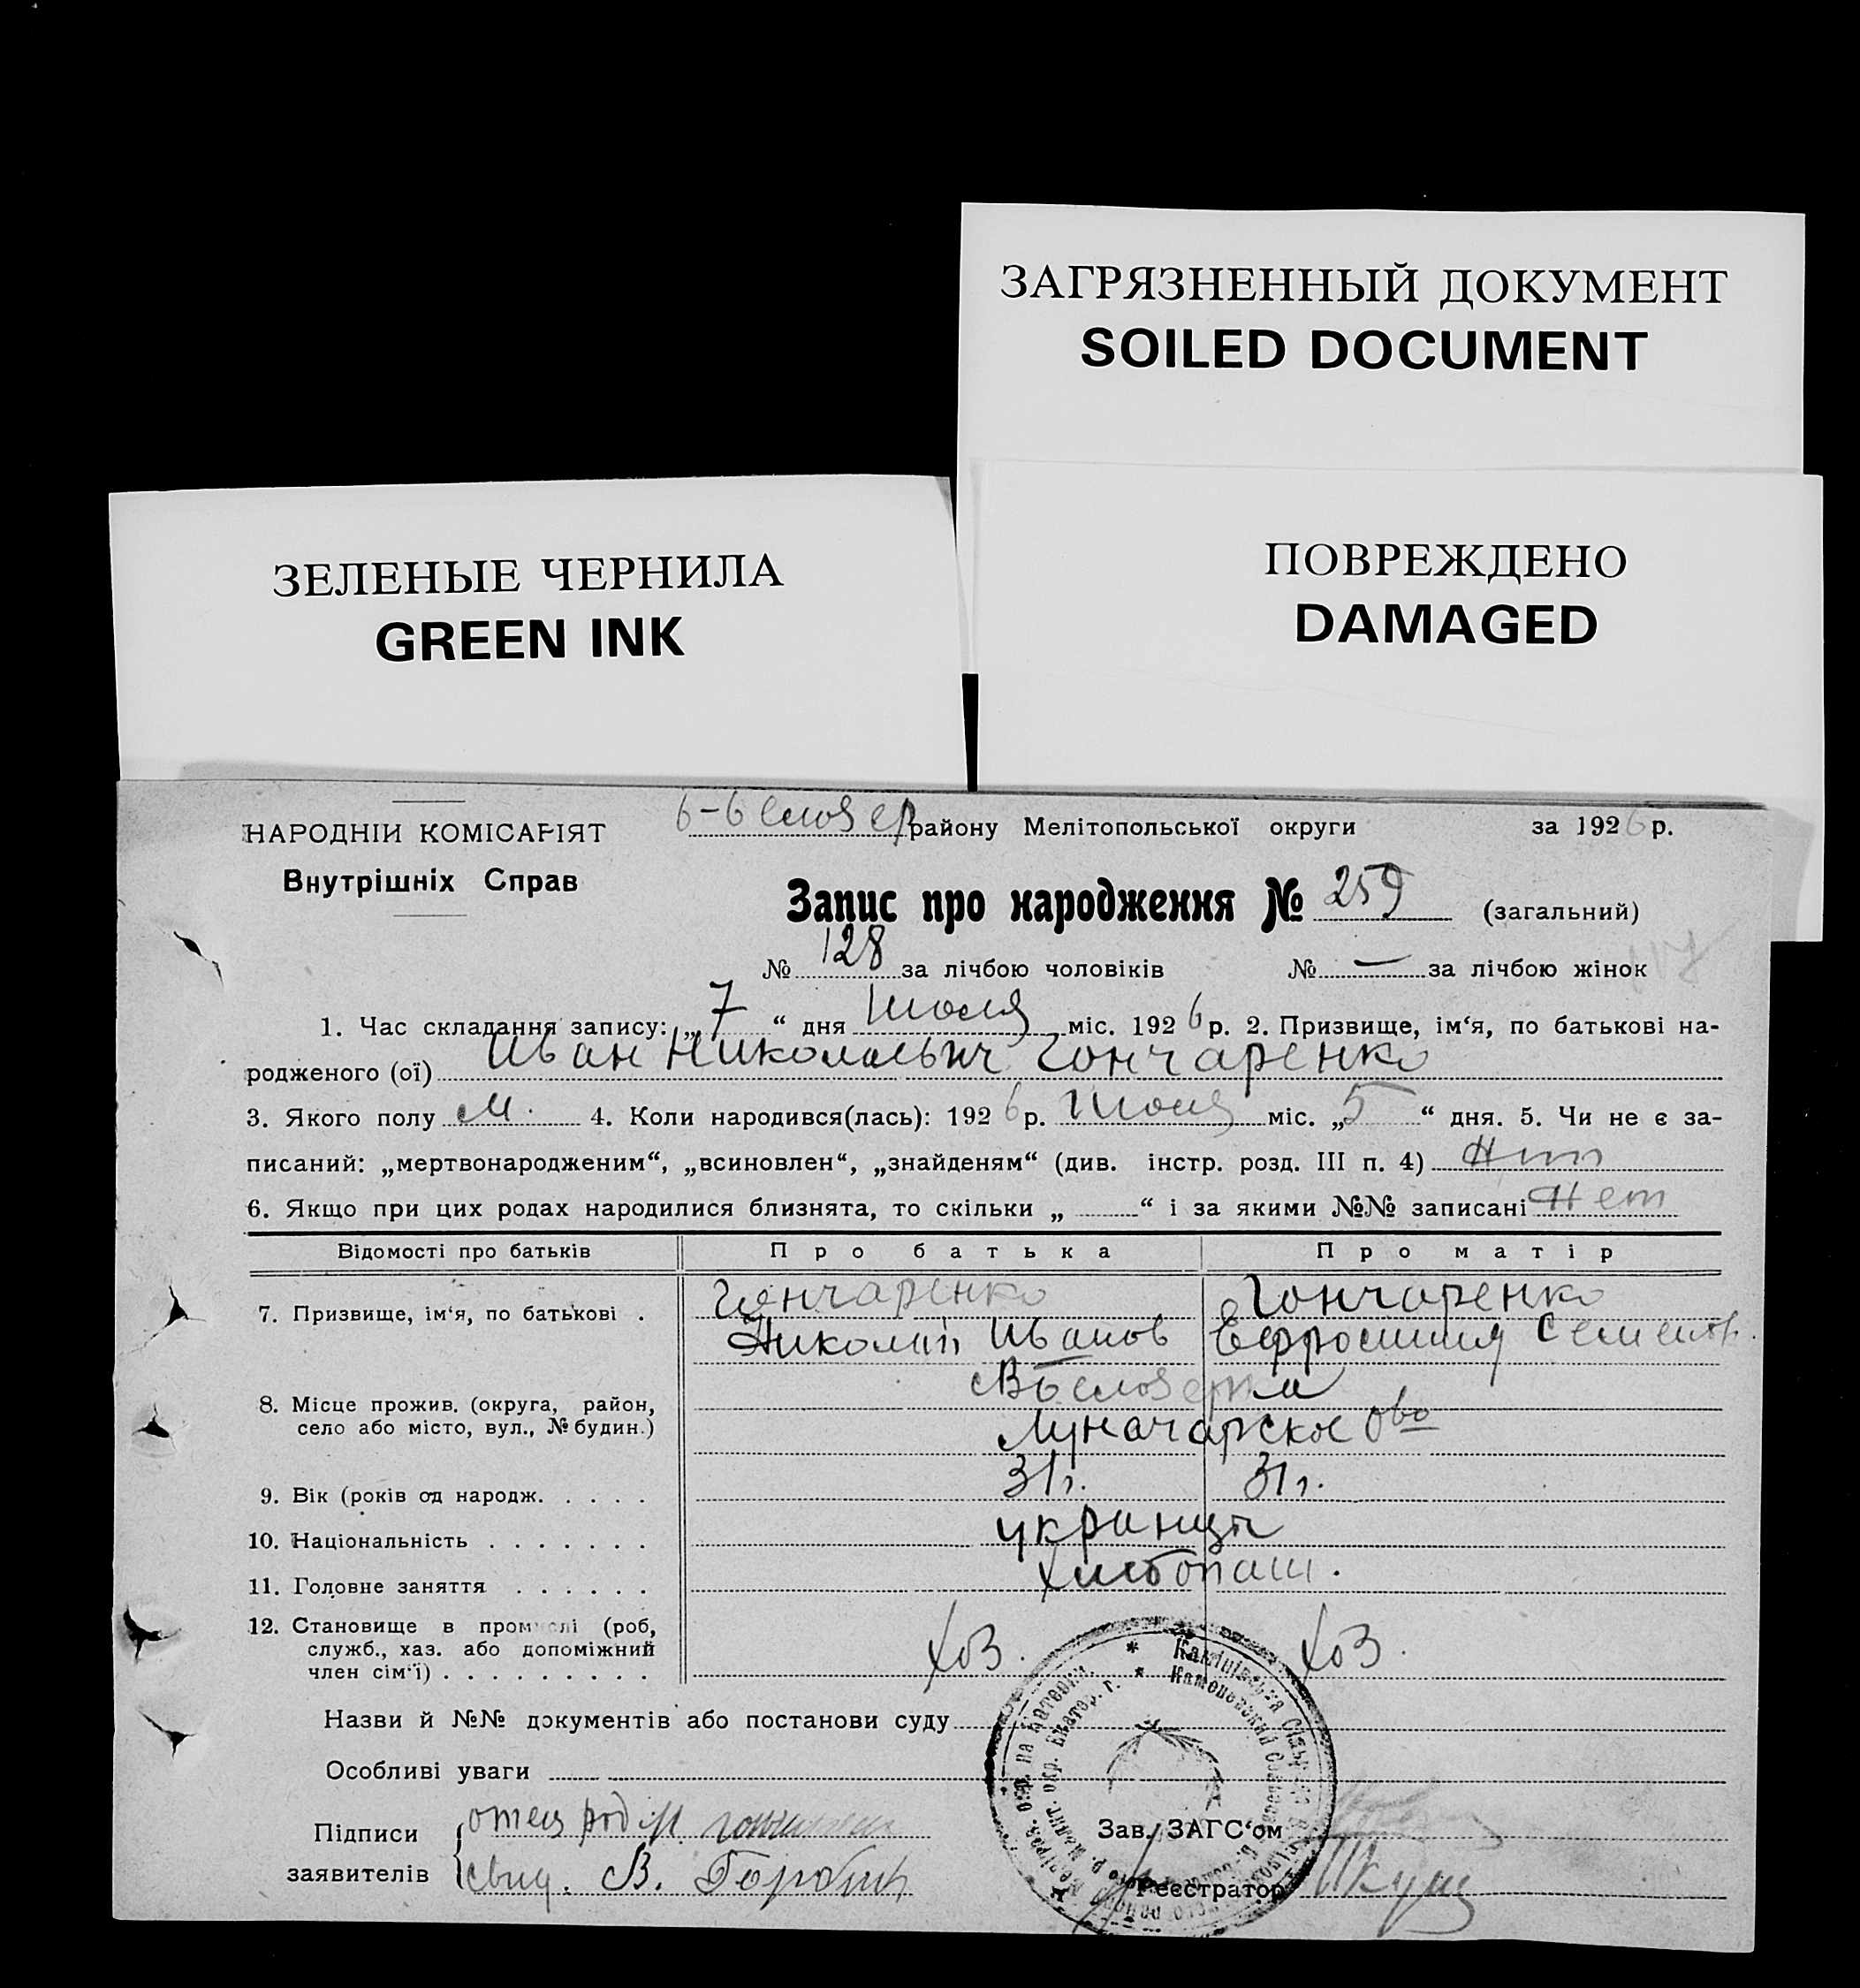 ЗАГРЯЗНЕННЫЙ ДОКУМЕНТ
SOILED DOCUMENT
ЗЕЛЕНЫЕ ЧЕРНИЛА
GREEN INK
ПОВРЕЖДЕНО
DAMAGED
НАРОДНІЙ КОМІСАРІЯТ
Внутрішніх Справ
району Мелітопольської округи за 1926 р.
Запис про народження № 259 (загальний)
№ 128 за лічбою чоловіків № — за лічбою жінок
1. Час складання запису: „7“ дня Июля міс. 1926 р. 2. Призвище, ім‘я, по батькові на-
родженого (ої) Иван Николаевич Гончаренко
3. Якого полу м. 4. Коли народився(лась): 1926 р. Июля міс. „5“ дня. 5. Чи не є за-
писаний: „мертвонародженим“, „всиновлен“, „знайденям“ (див. інстр. розд. III п. 4) Нет
6. Якщо при цих родах народилися близнята, то скільки „ “ і за якими №№ записані Нет
Відомості про батьків Про батька Про матір
7. Призвище, ім‘я, по батькові . Гончаренко Гончаренко
Николай Иванов Ефросиния Семенов.
8. Місце прожив. (округа, район,
село або місто, вул., № будин.)
Луначарское о-во
9. Вік (років од народж. . . . . 31 г. 31 г.
10. Національність . . . . . . .
11. Головне заняття . . . . . . хлебопаш.
12. Становище в промислі (роб,
служб., хаз. або допоміжний
член сім‘ї) . . . . . . . . . хоз. хоз.
Назви й №№ документів або постанови суду
Особливі уваги
Підписи
заявителів
отец
свид. В.
Зав. ЗАГС‘ом
Реєстратор